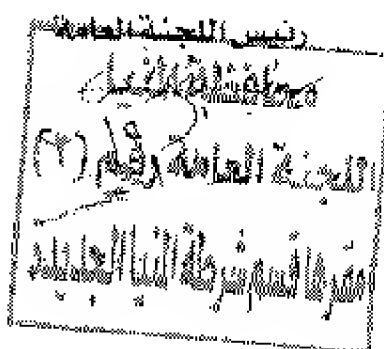 رئيس اللجنة العامة
محافظة المنيا
اللجنة العامة رقم (٢)
مقرها قسم شرطة المنيا الجديدة